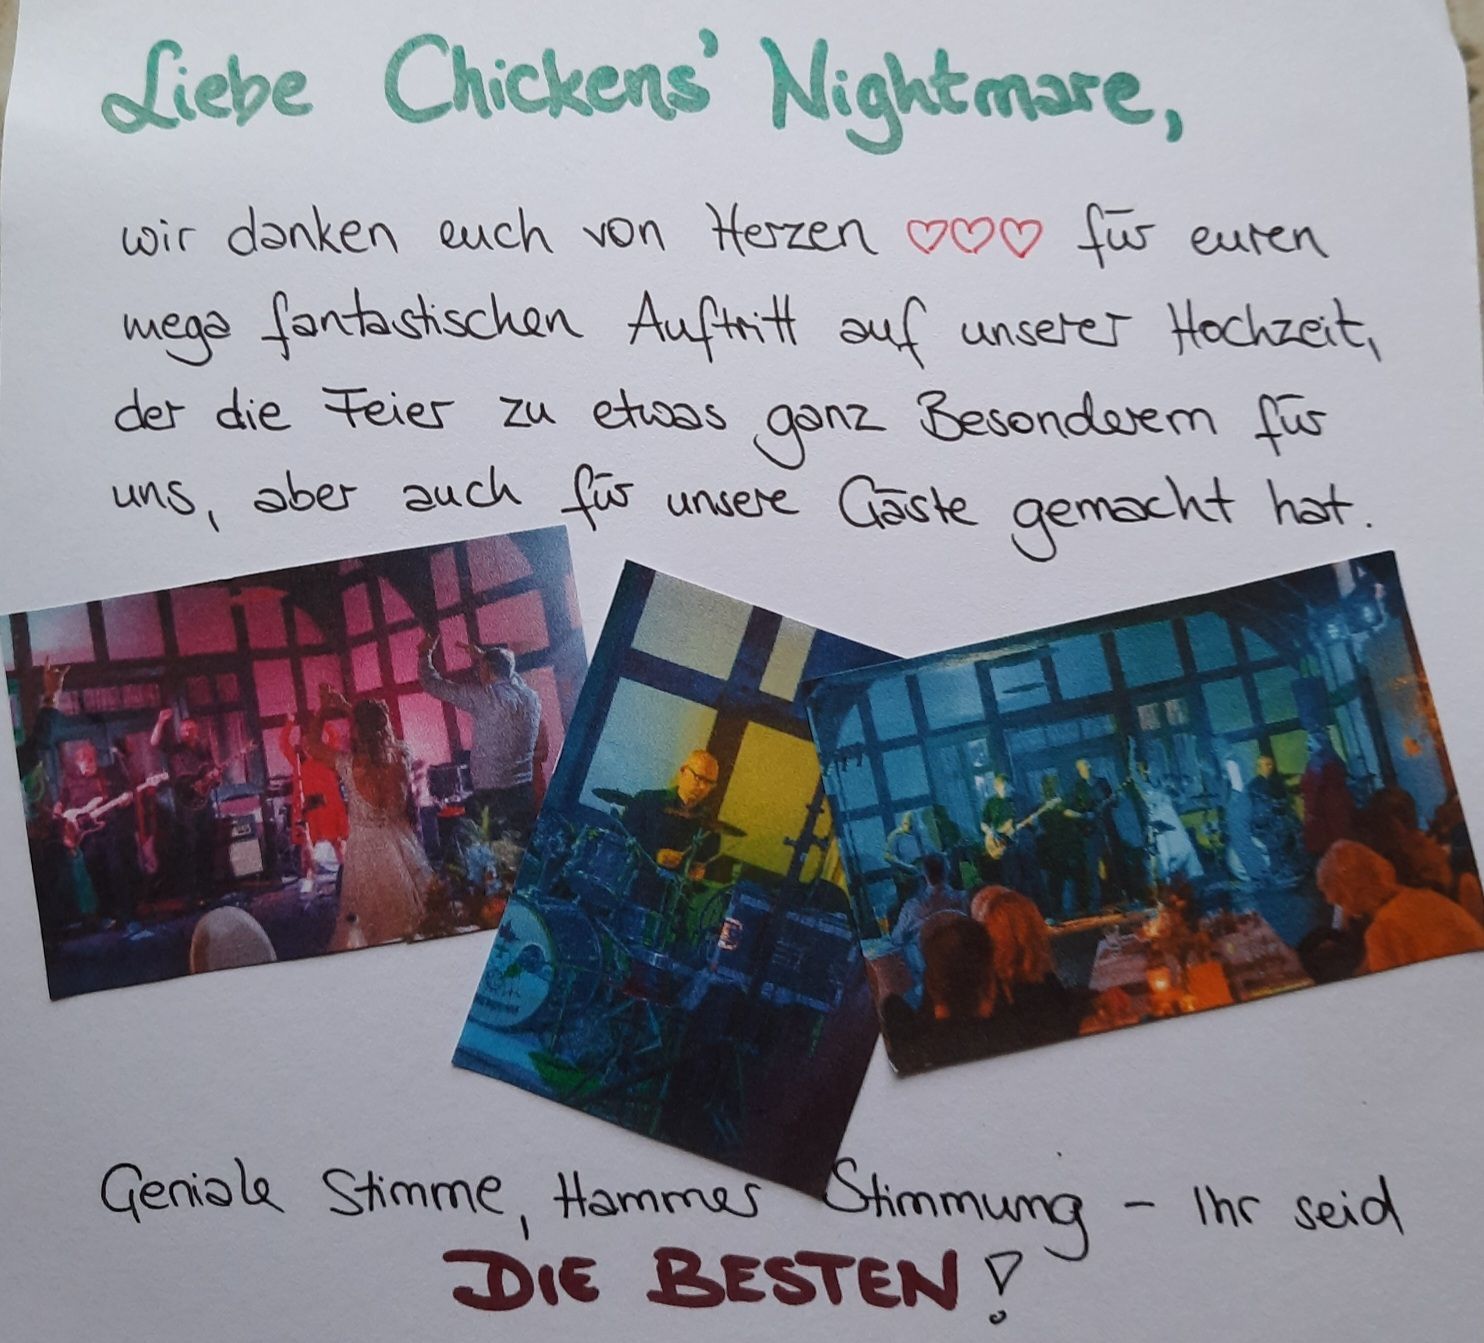 Liebe Chickens' Nightmare,
wir danken euch von Herzen ♡♡♡ für euren
mega fantastischen Auftritt auf unserer Hochzeit,
der die Feier zu etwas ganz Besonderem für
uns, aber auch für unsere Gäste gemacht hat.
Geniale Stimme, Hammer Stimmung - Ihr seid
DIE BESTEN!